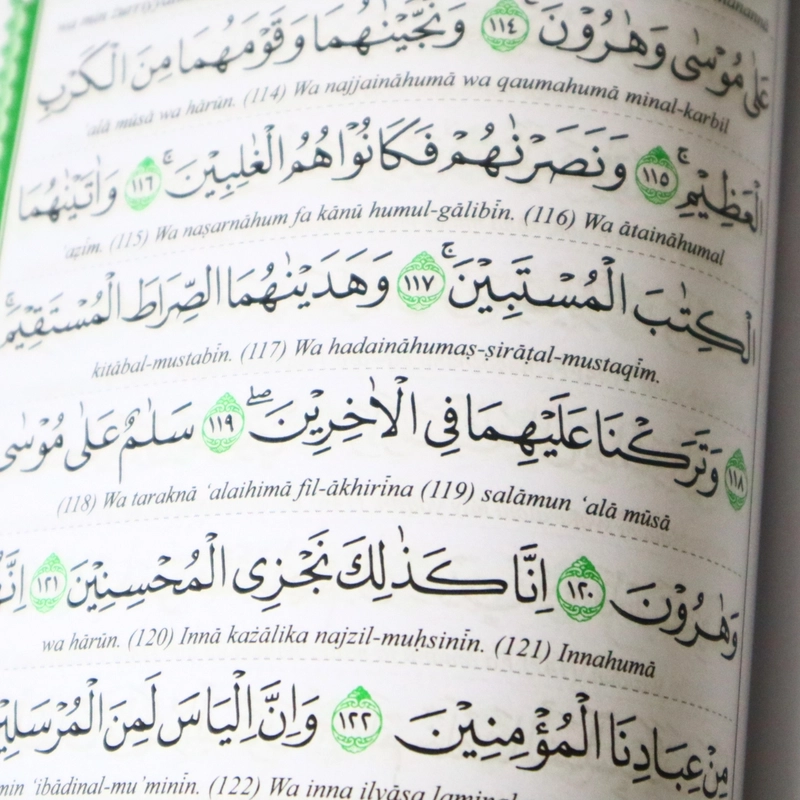 عَلٰى مُوْسٰى وَهٰرُوْنَ ۚ ١١٤ وَنَجَّيْنٰهُمَا وَقَوْمَهُمَا مِنَ الْكَرْبِ
'alā mūsā wa hārūn. (114) Wa najjaināhumā wa qaumahumā minal-karbil
الْعَظِيْمِ ۚ ١١٥ وَنَصَرْنٰهُمْ فَكَانُوْا هُمُ الْغٰلِبِيْنَ ۚ ١١٦ وَاٰتَيْنٰهُمَا
'aẓīm. (115) Wa naṣarnāhum fa kānū humul-gālibīn. (116) Wa ātaināhumal
الْكِتٰبَ الْمُسْتَبِيْنَ ۚ ١١٧ وَهَدَيْنٰهُمَا الصِّرَاطَ الْمُسْتَقِيْمَ ۚ
kitābal-mustabīn. (117) Wa hadaināhumaṣ-ṣirāṭal-mustaqīm.
١١٨ وَتَرَكْنَا عَلَيْهِمَا فِى الْاٰخِرِيْنَ ۖ ١١٩ سَلٰمٌ عَلٰى مُوْسٰى
(118) Wa taraknā 'alaihimā fil-ākhirīna (119) salāmun 'alā mūsā
وَهٰرُوْنَ ١٢٠ اِنَّا كَذٰلِكَ نَجْزِى الْمُحْسِنِيْنَ ١٢١
wa hārūn. (120) Innā każālika najzil-muḥsinīn. (121) Innahumā
مِنْ عِبَادِنَا الْمُؤْمِنِيْنَ ١٢٢ وَاِنَّ اِلْيَاسَ لَمِنَ
min 'ibādinal-mu'minīn. (122) Wa inna ilyāsa